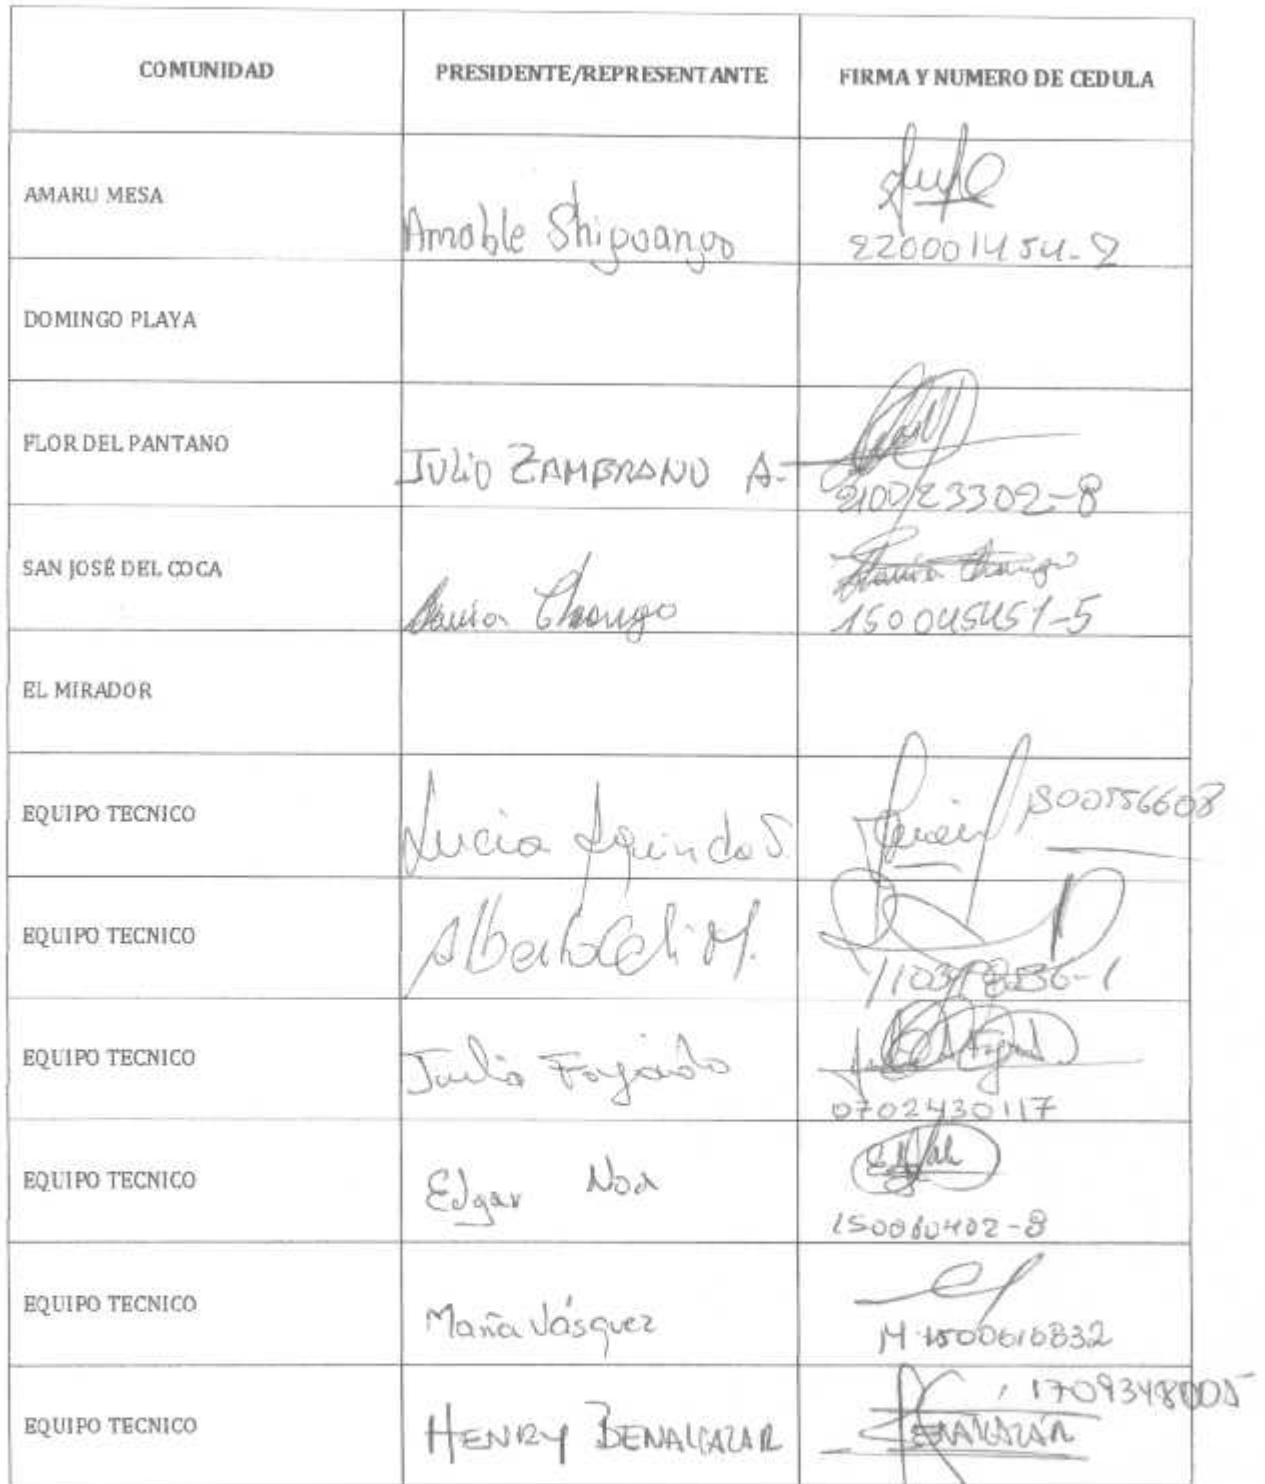 COMUNIDAD
PRESIDENTE/REPRESENTANTE
FIRMA Y NUMERO DE CEDULA
AMARU MESA
Amable Shiguango
220001454-2
DOMINGO PLAYA
FLOR DEL PANTANO
JULIO ZAMBRANO A.
210023302-8
SAN JOSÉ DEL COCA
Chango
Chango
150045451-5
EL MIRADOR
EQUIPO TECNICO
Lucia
EQUIPO TECNICO
Alberto Celi M.
EQUIPO TECNICO
Julio Fajardo
0702430117
EQUIPO TECNICO
Edgar Noa
EQUIPO TECNICO
María Vásquez
EQUIPO TECNICO
HENRY BENALCAZAR
BENALCAZAR